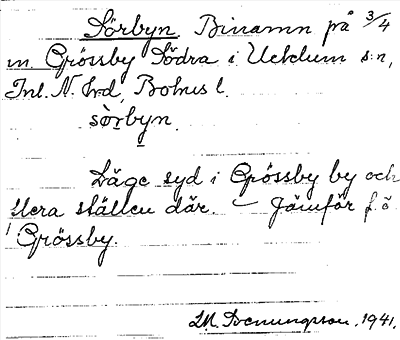 Sörbyn Binamn på 3/4
m. Grössby Södra i Ucklum s:n,
Inl. N. hrd, Bohus l.
sò̱rbyn.
Läge syd i Grössby by och
flera ställen där. – Jämför f. ö.
Grössby.
1941.